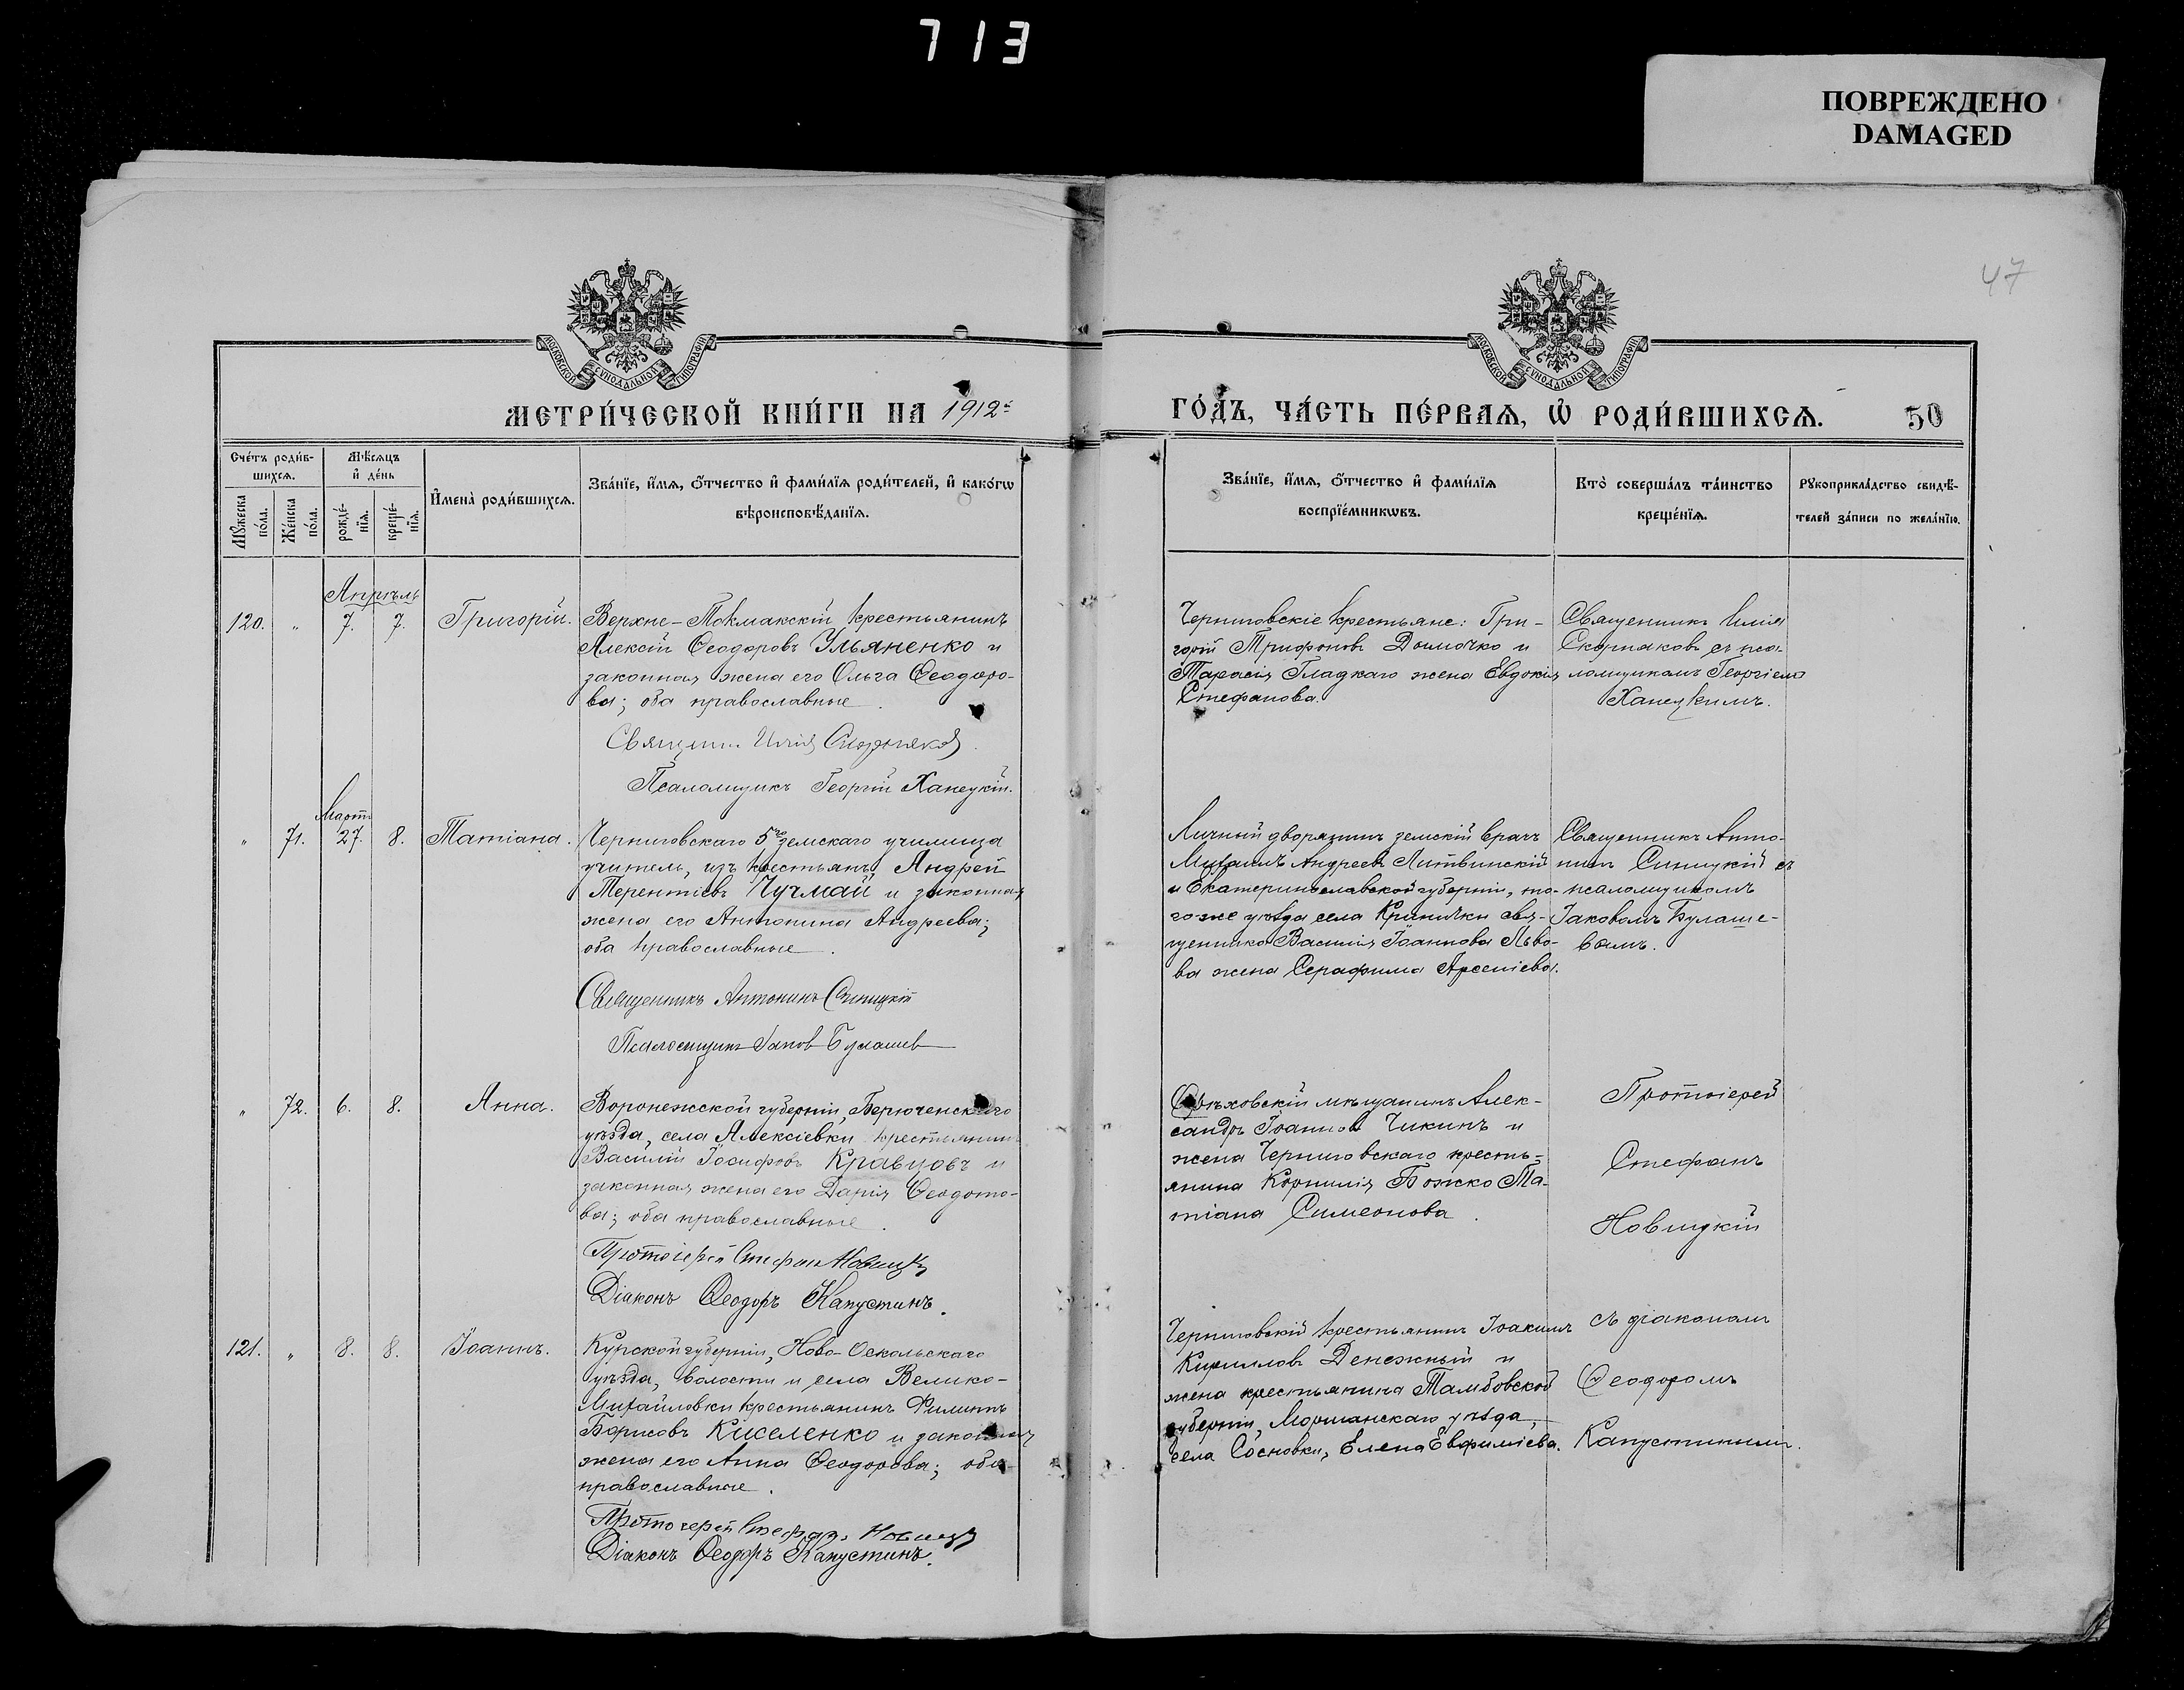 713
ПОВРЕЖДЕНО
DAMAGED
47
МОСКОВСКОЙ СУНОДАЛЬНОЙ ТИПОГРАФІИ
МОСКОВСКОЙ СУНОДАЛЬНОЙ ТИПОГРАФІИ
МЕТРИ́ЧЕСКОЙ КНИ́ГИ НА 1912й
ГО́ДЪ, ЧА́СТЬ ПЕ́РВАѦ, Ѡ҆ РОДИ́ВШИХСѦ.
50
Сче́тъ роди́в-
шихсѧ.
Мꙋжеска по́ла.
Же́нска по́ла.
Мѣ́сѧцъ
и҆ де́нь
рожде́-
нїѧ.
креще́-
нїѧ.
И҆мена̀ роди́вшихсѧ.
Зва́нїе, и҆́мѧ, ѻ҆́тчество и҆ фами́лїѧ роди́телей, и҆ како́гѡ
вѣроисповѣ́данїѧ.
Зва́нїе, и҆́мѧ, ѻ҆́тчество и҆ фами́лїѧ
воспрїе́мникѡвъ.
Кто̀ соверша́лъ та́инство
креще́нїѧ.
Рꙋкоприкла́дство свидѣ́-
телей за́писи по жела́нїю.
Апрѣль
120. " 7. 7. Григорій.
Верхне-Токмакскій крестьянинъ
Алексій Ѳеодоровъ Ульяненко и
законная жена его Ольга Ѳеодоро-
ва; оба православные.
Священн. Илія Скорняковъ.
Псаломщикъ Георгій Ханецкій.
Черниговскіе крестьяне: Гри-
горій Трифоновъ Домочко и
Тарасія Гладкаго жена Евдокія
Стефанова.
Священникъ Илія
Скорняковъ съ пса-
ломщикомъ Георгіемъ
Ханецкимъ.
Мартъ
" 71. 27. 8. Татіана.
Черниговскаго 5го земскаго училища
учитель, изъ крестьянъ, Андрей
Терентіевъ Чучмай и законная
жена его Антонина Андреева;
оба православные.
Священникъ Антонинъ Синицкій
Псаломщикъ Іаковъ Булашев
Личный дворянинъ земскій врачъ
Михаилъ Андреевъ Литвинскій
и Екатеринославской губерніи, то-
гоже уѣзда села Кринички свя-
щенника Василія Іоаннова Льво-
ва жена Серафима Арсеніева.
Священникъ Анто-
нинъ Синицкій съ
псаломщикомъ
Іаковомъ Булаше-
вымъ.
" 72. 6. 8. Анна.
Воронежской губерніи, Бирюченскаго
уѣзда, села Алексіевки крестьянинъ
Василій Іосифовъ Кравцовъ и
законная жена его Дарія Ѳеодото-
ва; оба православные.
Протоіерей Стефанъ Новицкій
Діаконъ Ѳеодоръ Капустинъ.
Орѣховскій мѣщанинъ Алек-
сандръ Іоанновъ Чикинъ и
жена Черниговскаго кресть-
янина Корнилія Божко Та-
тіана Симеонова.
Протоіерей
Стефанъ
Новицкій
121. " 8. 8. Іоаннъ.
Курской губерніи, Ново-Оскольскаго
уѣзда, волости и села Велико-
Михайловки крестьянинъ Филиппъ
Борисовъ Киселенко и законная
жена его Анна Ѳеодорова; оба
православные.
Протоіерей Стефанъ Новицкій
Діаконъ Ѳеодоръ Капустинъ.
Черниговскій крестьянинъ Іоакимъ
Кирилловъ Денежный и
жена крестьянина Тамбовской
губерніи, Моршанскаго уѣзда,
села Сосновки, Елена Евфиміева.
съ діакономъ
Ѳеодоромъ
Капустинымъ.